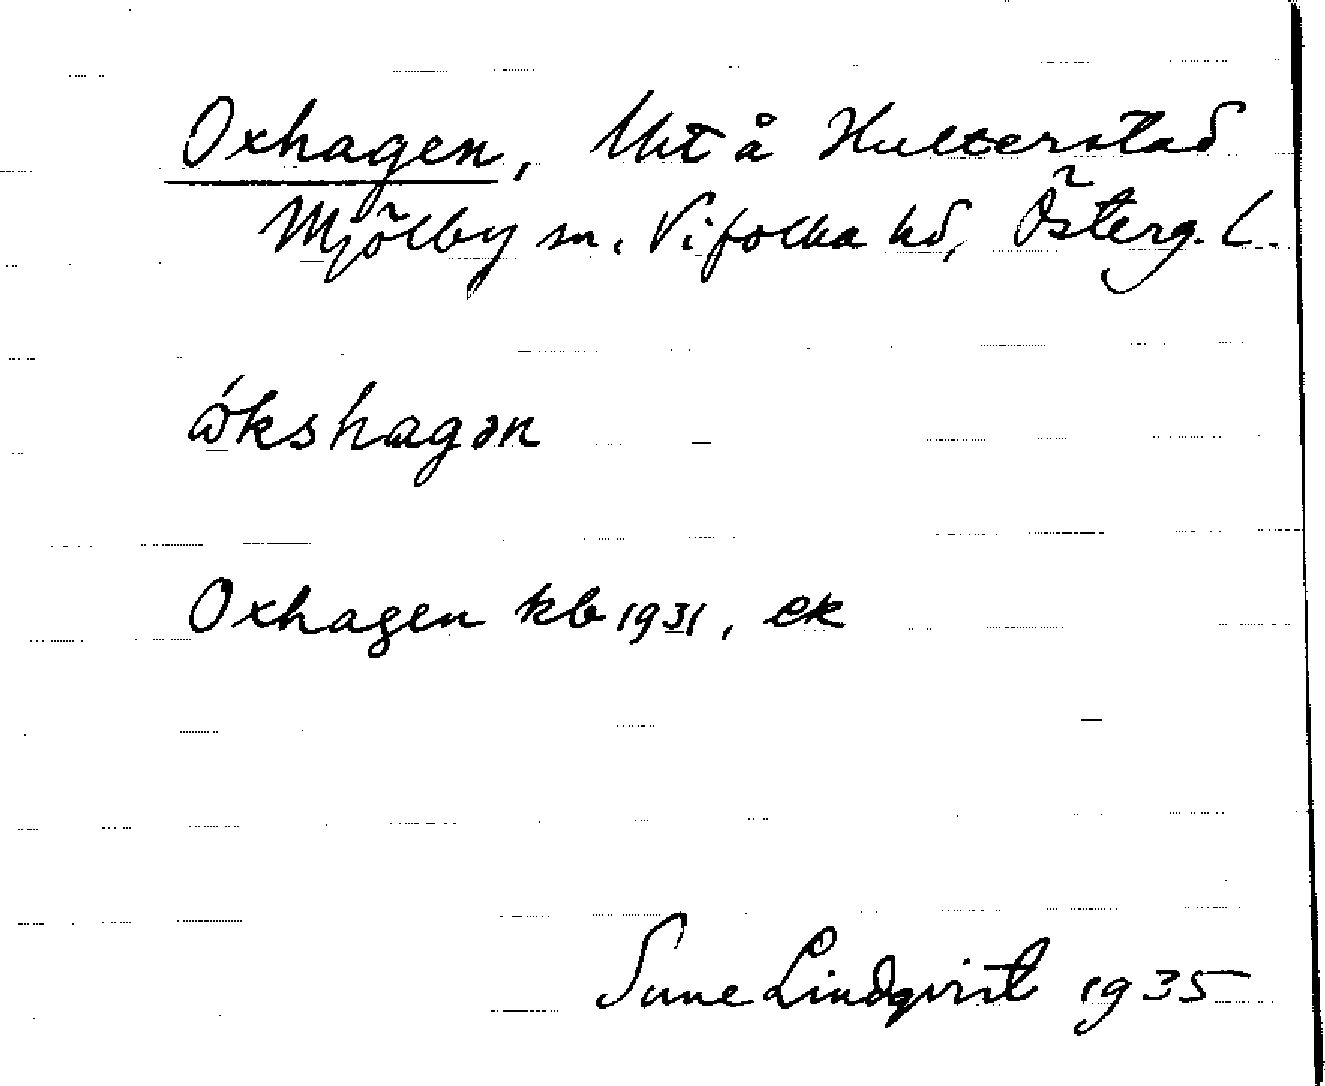 Oxhagen, lht å Hulterstad
Mjölby sn. Vifolka hd, Österg. l.
ɷ́kshagən
Oxhagen kb 1931, ek
Sune Lindqvist 1935